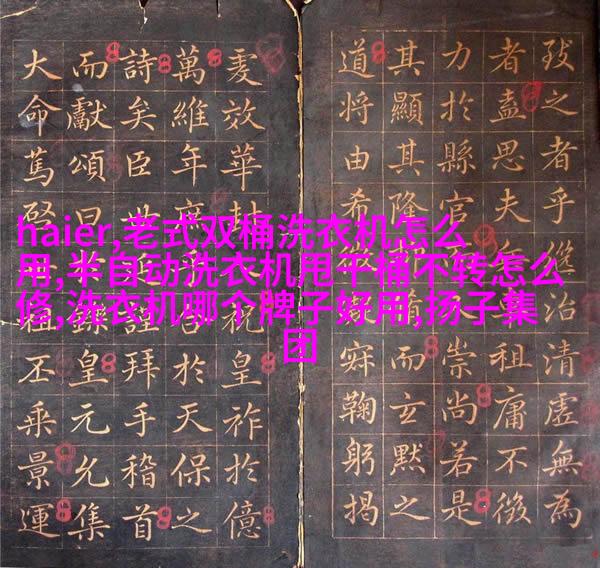 haier,老式双桶洗衣机怎么
用,半自动洗衣机甩干桶不转怎么
修,洗衣机哪个牌子好用,扬子集
团
之者乎治清虛無為
者盍思夫祖庸不
力於縣官崇尚若是
其顯其隆而玄默之
道将由希鞠躬揭
效華封祝皇祚於億
萬維年於天保之
詩矣臣謹拜手稽首
而獻頌曰皇元允集
大命篤丕乘景運